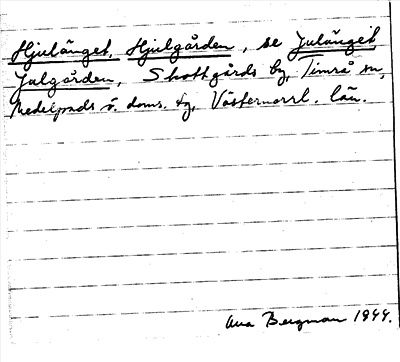 Hjulänget, Hjulgården, se Julänget
Julgården, Skottgårds by, Timrå sn,
Medelpads ö. doms. tg, Västernorrl. län.
Ava Bergman 1944.